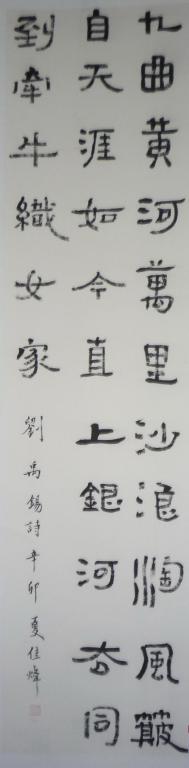 九曲黄河萬里沙浪淘風簸
自天涯如今直上銀河去同
到牽牛織女家
劉禹錫詩辛卯夏佳